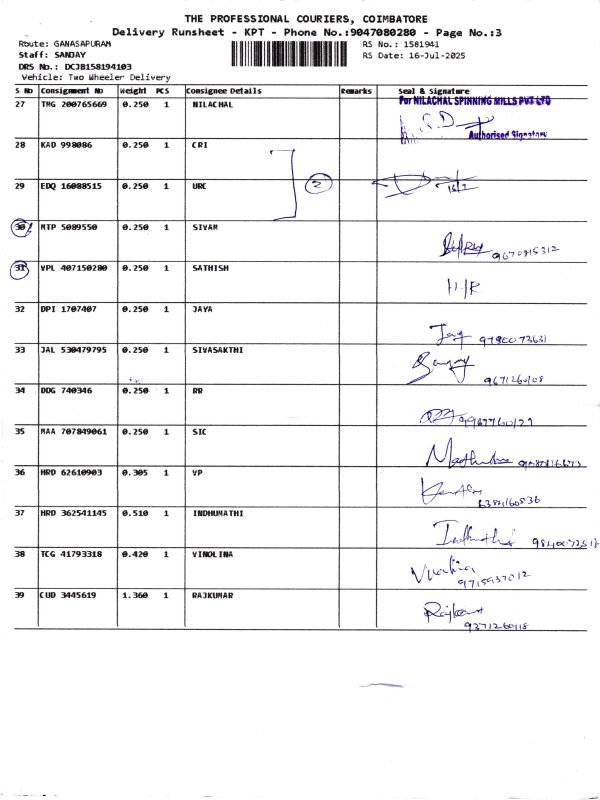 THE PROFESSIONAL COURIERS, COIMBATORE
Delivery Runsheet - KPT - Phone No.:9047080280 - Page No.:3
Route: GANASAPURAM
RS No.: 1581941
Staff: SANJAY
RS Date: 16-Jul-2025
DRS No.: DCJB158194103
Vehicle: Two Wheeler Delivery
S No Consignment No Weight PCS Consignee Details Remarks Seal & signature
27 TMG 200765669 0.250 1 NILACHAL
For NILACHAL SPINNING MILLS PVT LTD
Authorised Signatory
28 KAD 998086 0.250 1 CRI
29 EDQ 16088515 0.250 1 URC 2 16/7
30 MTP 5089550 0.250 1 SIVAM
9670815312
31 VPL 407150280 0.250 1 SATHISH H/R
32 DPI 1707407 0.250 1 JAYA
33 JAL 530479795 0.250 1 SIVASAKTHI
34 DDG 740346 0.250 1 RR
35 MAA 707849061 0.250 1 SIC
36 HRD 62610903 0.305 1 VP
6384160836
37 HRD 362541145 0.510 1 INDHUMATHI
38 TCG 41793318 0.420 1 VINOLINA
9715937012
39 CUD 3445619 1.360 1 RAJKUMAR
9371260118